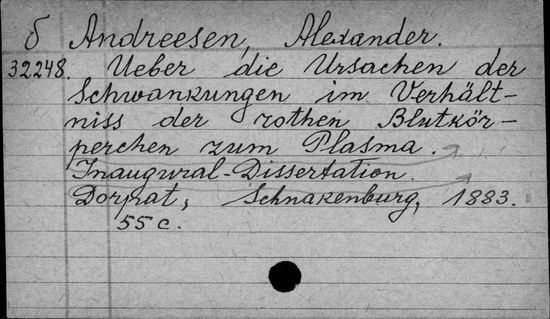 б Andreesen, Alexander.
32248. Ueber die Ursachen der
Schwankungen im Verhält-
niss der rothen Blutkör-
perchen zum Plasma.
Inaugural-Dissertation.
Dorpat, Schnakenburg, 1883.
55 c.